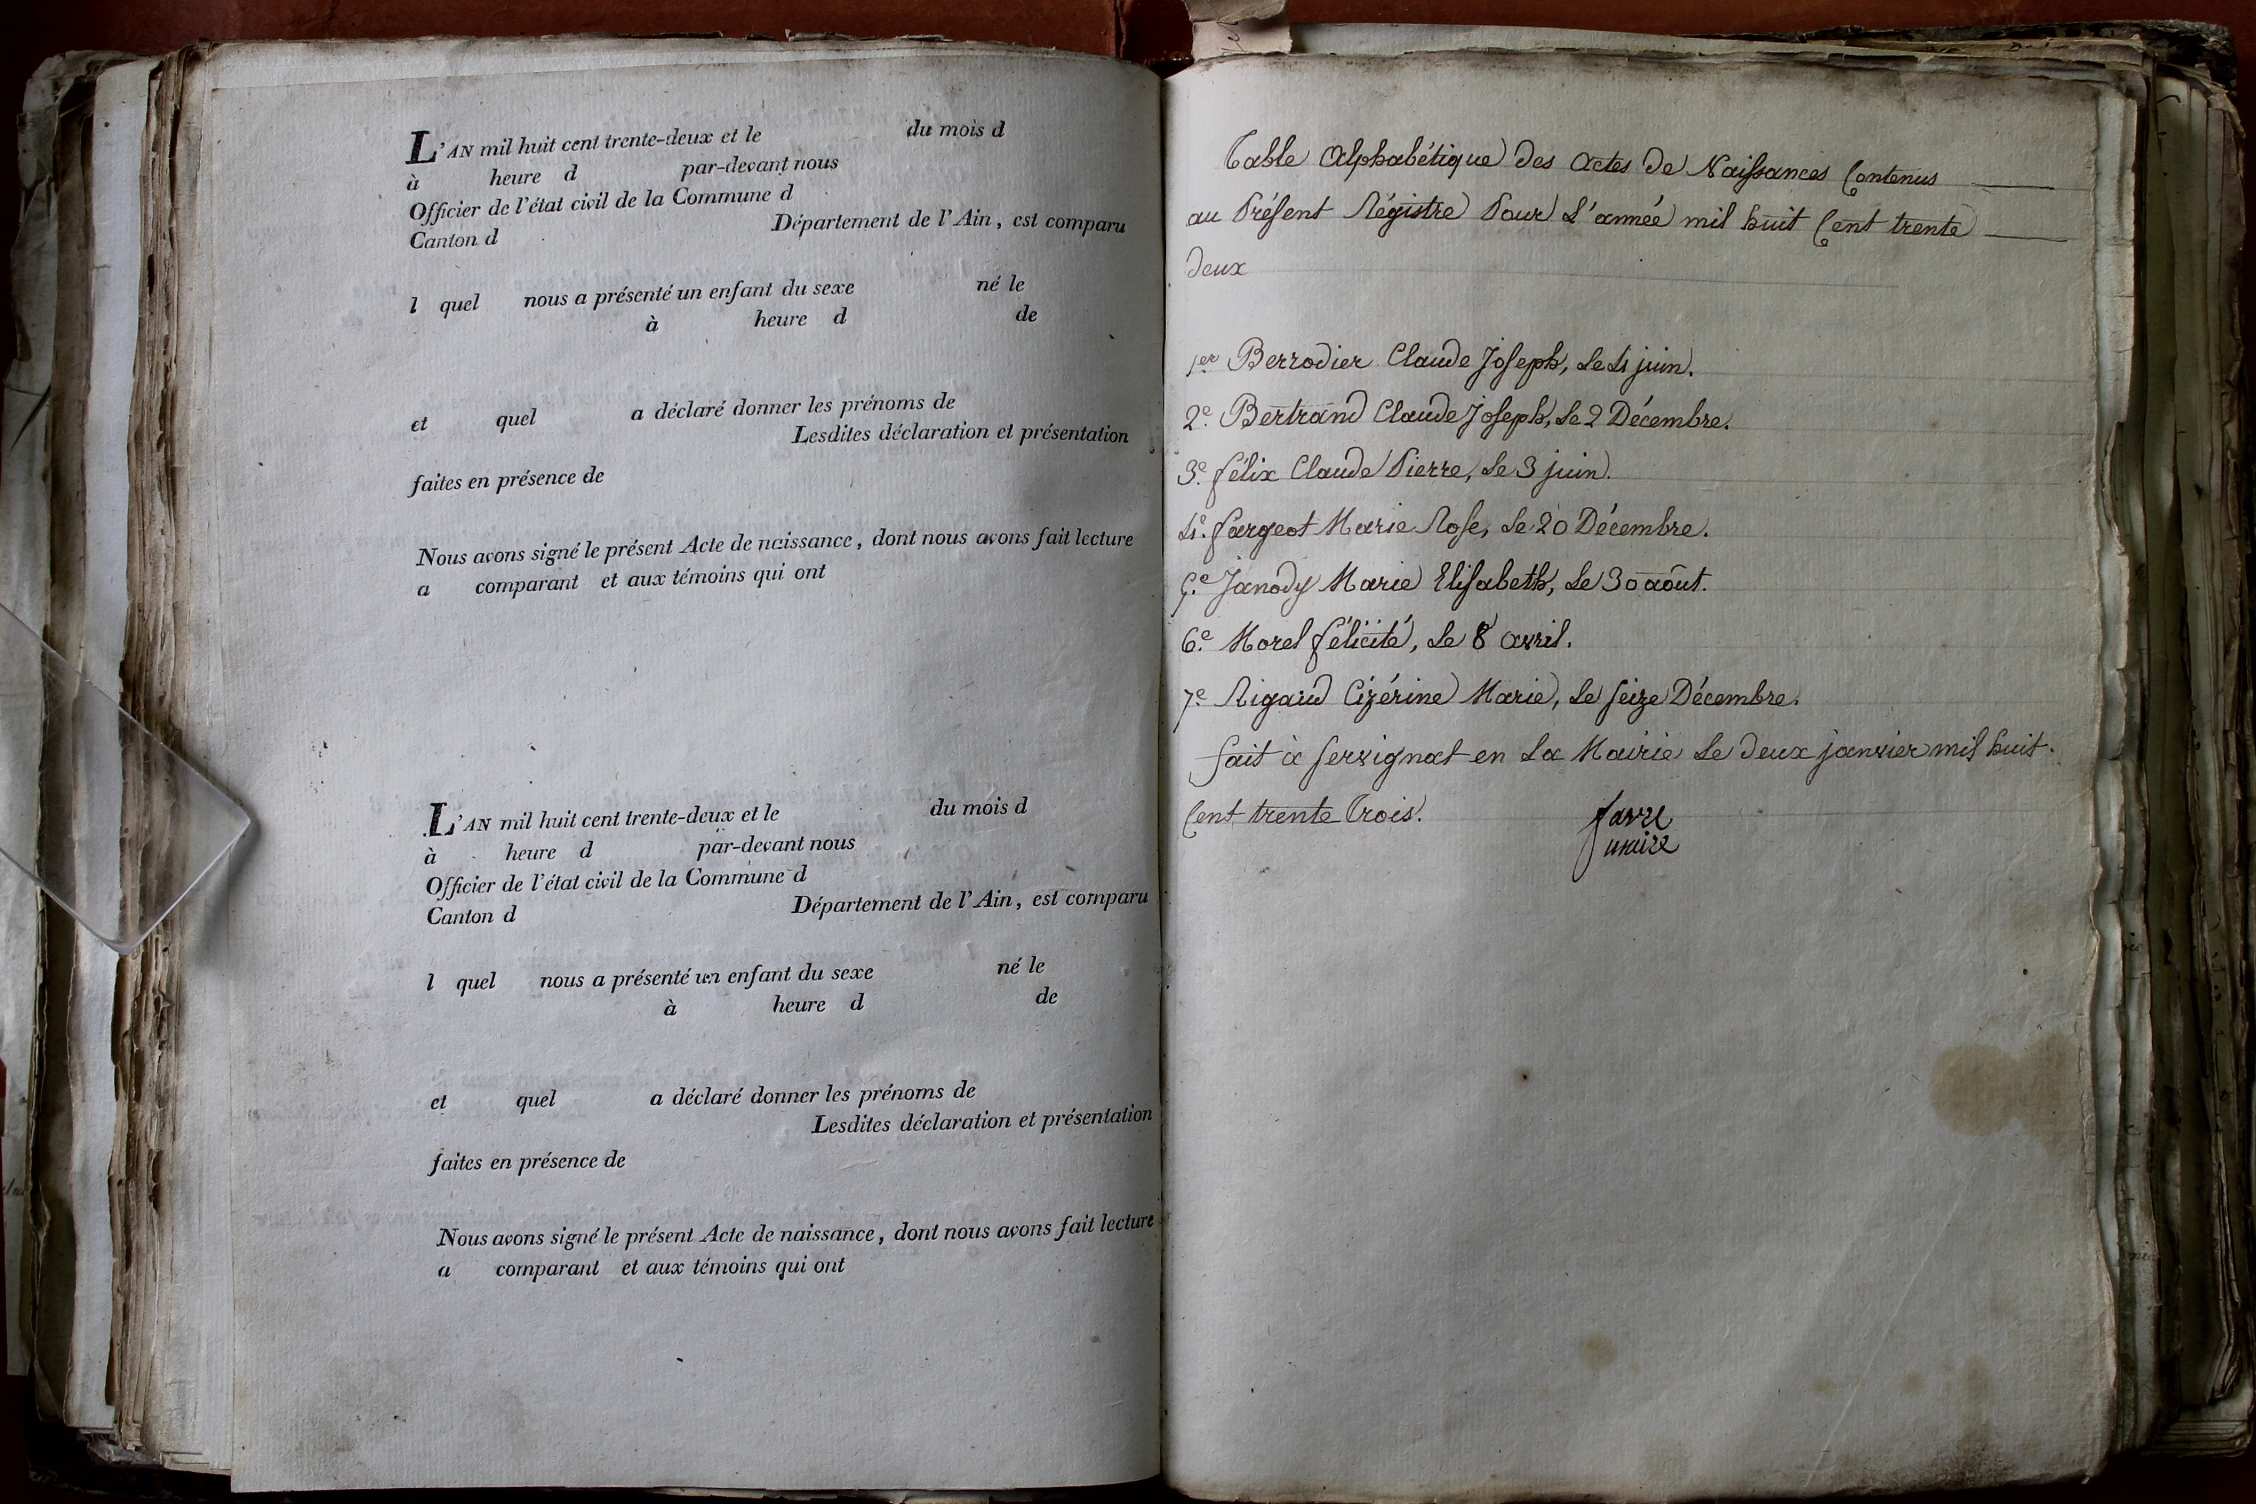 L'AN mil huit cent trente-deux et le du mois d
à heure d par-devant nous
Officier de l'état civil de la Commune d
Canton d Département de l'Ain, est comparu
l quel nous a présenté un enfant du sexe né le
à heure d de
et quel a déclaré donner les prénoms de
Lesdites déclaration et présentation
faites en présence de
Nous avons signé le présent Acte de naissance, dont nous avons fait lecture
a comparant et aux témoins qui ont
L'AN mil huit cent trente-deux et le du mois d
à heure d par-devant nous
Officier de l'état civil de la Commune d
Canton d Département de l'Ain, est comparu
l quel nous a présenté un enfant du sexe né le
à heure d de
et quel a déclaré donner les prénoms de
Lesdites déclaration et présentation
faites en présence de
Nous avons signé le présent Acte de naissance, dont nous avons fait lecture
a comparant et aux témoins qui ont
Table Alphabétique des actes de Naissances Contenus
au Présent Régistre Pour L'année mil huit Cent trente
deux
1er Berrodier Claude Joseph, Le 4 juin.
2e. Bertrand Claude Joseph, Le 2 Décembre.
3e. félix Claude Pierre, Le 3 juin.
4e. fargeot Marie Rose, Le 20 Décembre.
5e. Janody Marie Elisabeth, Le 30 août.
6e. Morel félicité, Le 8 avril.
7e. Rigaud Cizérine Marie, Le seize Décembre.
fait à servignat en La Mairie Le deux janvier mil huit
Cent trente Trois.
favre
maire